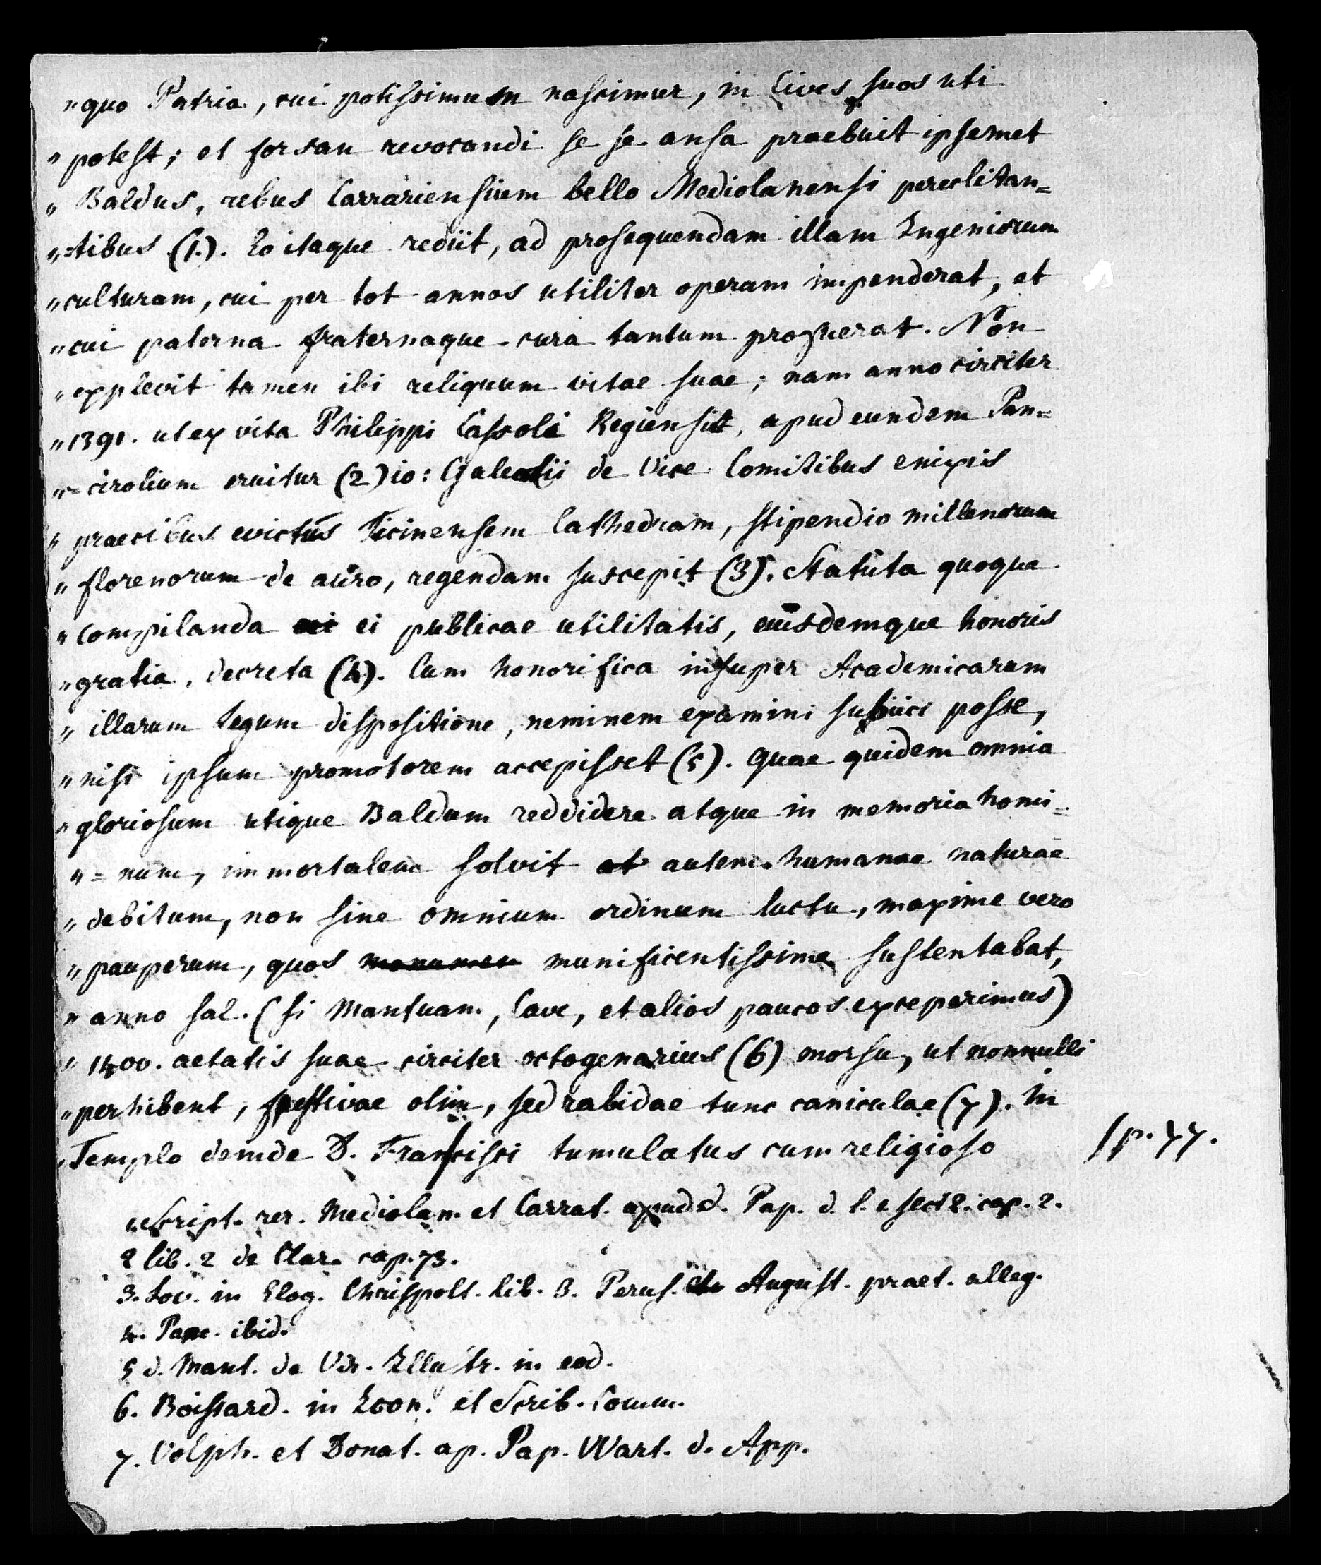 „quo Patria, cui potissimum nascimur, in Cives suos uti
„potest; et forsan revocandi se se ansa praebuit ipsemet
„Baldus, rebus Carrariensium bello Mediolanensi pereclitan=
„=tibus (1.). Eo itaque rediit, ad prosequendam illam Ingeniorum
„culturam, cui per tot annos utiliter operam impenderat, et
„cui paterna fraternaque cura tantum profuerat. Non
„explevit tamen ibi reliquum vitae suae; nam anno circiter
„1391. ut ex vita Philippi Cassoli Regiensis, apud eundem Pan=
„=cirolium eruitur (2) io: Galeatii de Vice Comitibus enixis
„praecibus evictus Ticinensem Cathedram, stipendio millenorum
„florenorum de auro, regendam suscepit (3). Statuta quoque
„compilanda ei publicae utilitatis, eiusdemque honoris
„gratia, decreta (4). Cum honorifica insuper Academicarum
„illarum legum dispositione, neminem examini subiici posse,
„nisi ipsum promotorem accepisset (5). Quae quidem omnia
„gloriosum utique Baldum reddidere atque in memoria homi=
„=num, immortalem solvit autem humanae naturae
„debitum, non sine omnium ordinum luctu, maxime vero
„pauperum, quos munificentissime sustentabat,
„anno sal. (si Mantuam, Cave, et alios paucos exceperimus)
„1400. aetatis suae circiter octogenarius (6) morsu, ut nonnulli
„perhibent, festivae olim, sed rabidae tunc caniculae (7). In
„Templo deinde D. Francisci tumulatus cum religioso
p. 77.
1 Script. rer. Mediolan. et Carrat. apud d. Pap. d. l. e sect 2. cap. 2.
2 lib. 2 de Clar. cap. 73.
3. Iov. in Elog. Chrispolt. lib. 3. Perus. August. praet. alleg.
4. Panc. ibid.
5 d. Mant. de Vir. Illustr. in eod.
6. Boissard. in Icon. et Scrib. Comm.
7. Volph. et Donat. ap. Pap. Wart. d. App.